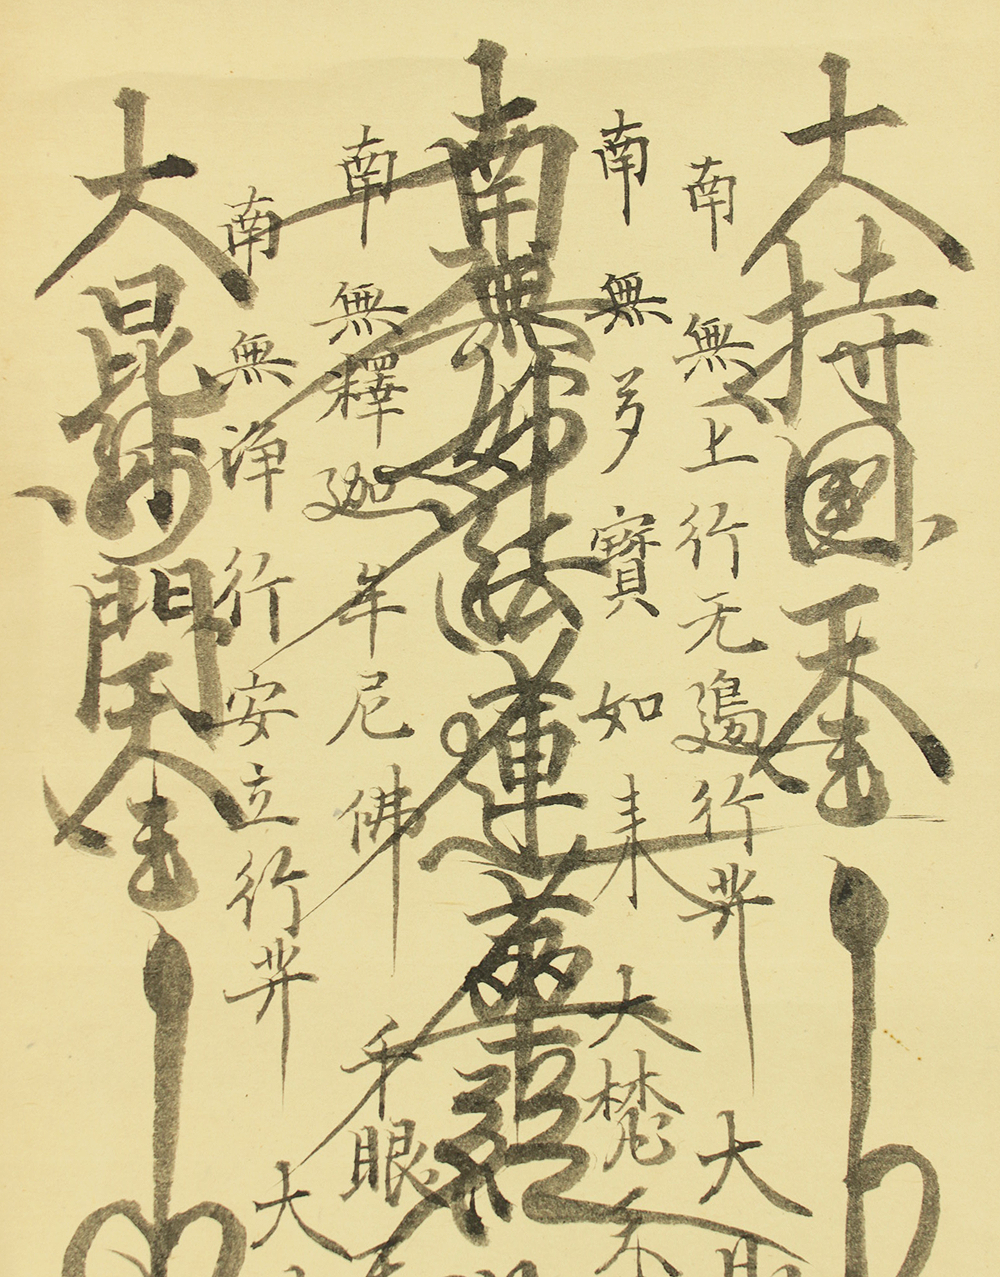 大持国天王
南無上行无邊行𦬇
大日
南無多寶如来
大梵天
南無妙法蓮華經
南無釋迦牟尼佛
千眼天
南無浄行安立行𦬇
大
大毘沙門天王